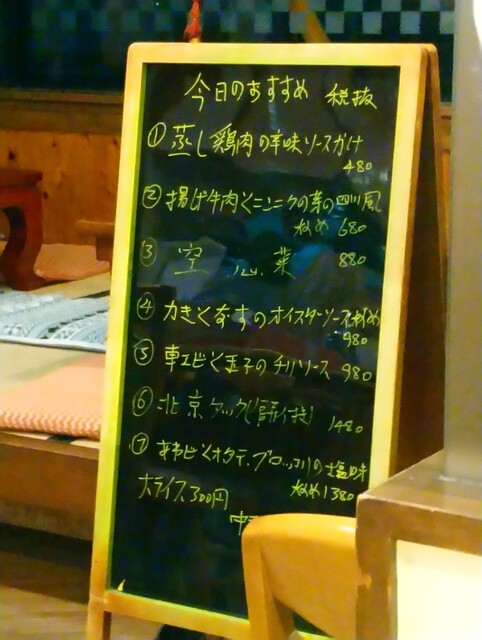 今日のおすすめ 税抜
① 蒸し鶏肉の辛味ソースかけ
480
② 揚げ牛肉とニンニクの芽の四川風
炒め 680
③ 空心菜 880
④ カキとなすのオイスターソース炒め
980
⑤ 車エビと玉子のチリソース 980
⑥ 北京ダック 1480
⑦ あわびとホタテ、ブロッコリの塩味
炒め 1380
大ライス300円